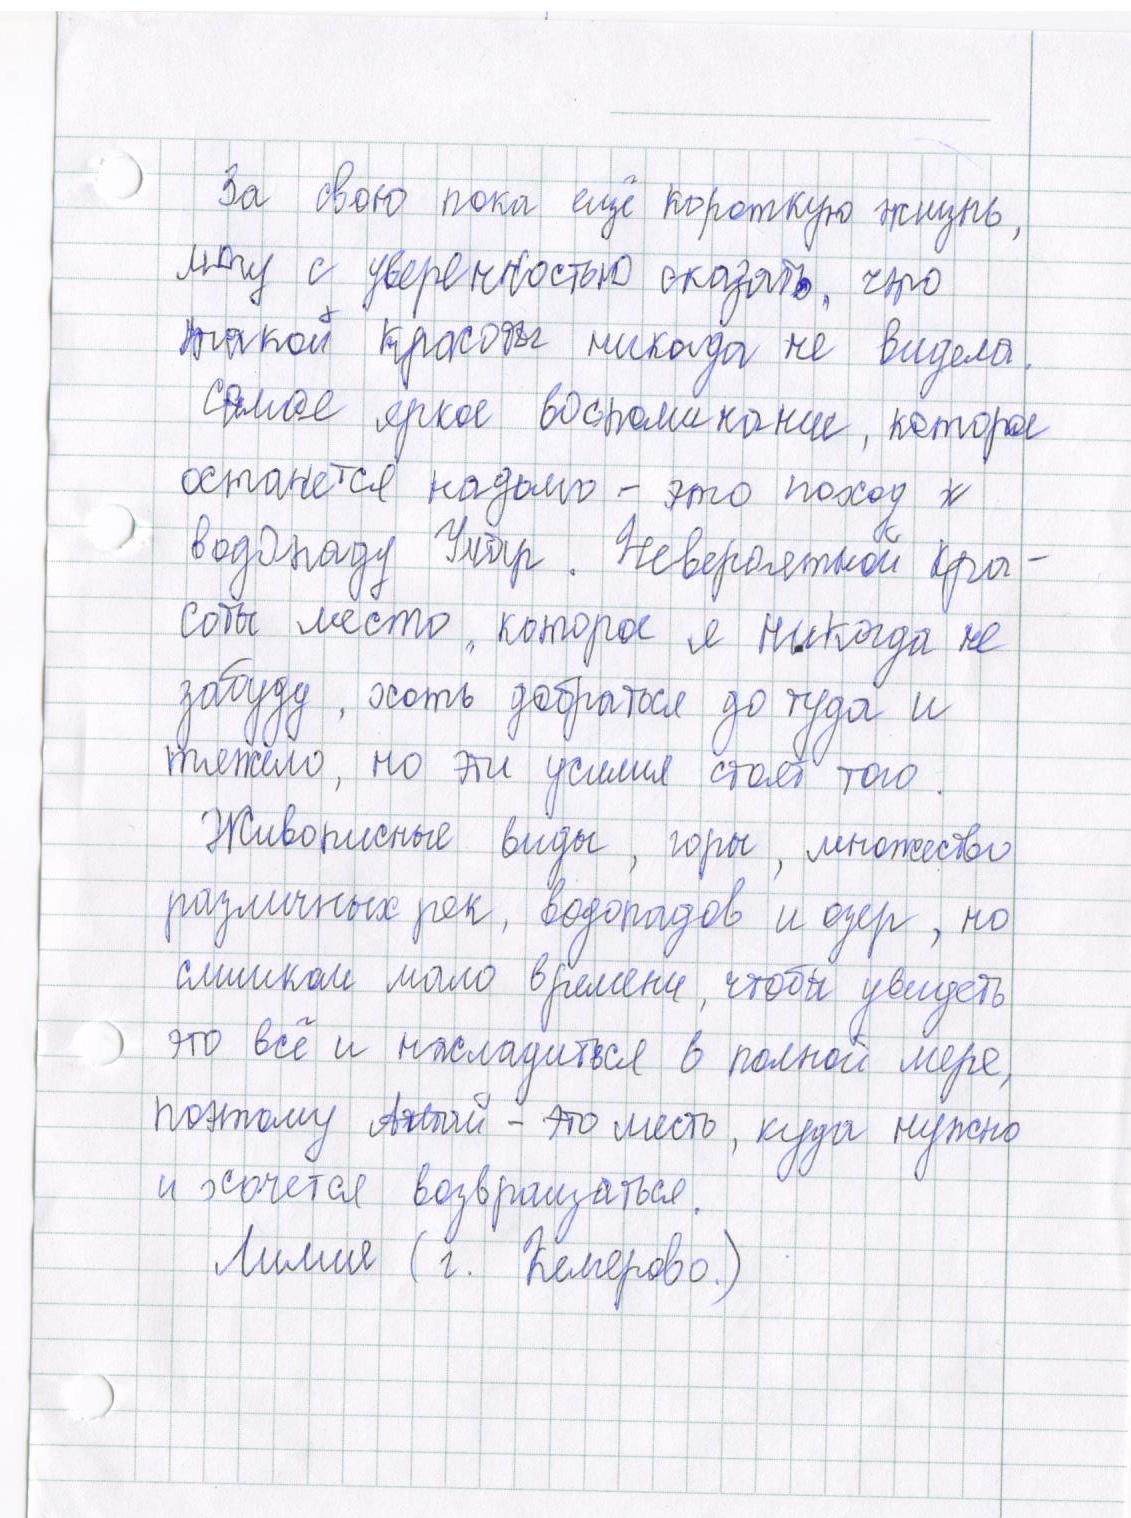 За свою пока ещё короткую жизнь,
могу с уверенностью сказать, что
такой красоты никогда не видела.
Самое яркое воспоминание, которое
останется надолго - это поход к
водопаду Учар. Невероятной кра-
соты место, которое я никогда не
забуду, хоть добраться до туда и
тяжело, но эти усилия стоят того.
Живописные виды, горы, множество
различных рек, водопадов и озер, но
слишком мало времени, чтобы увидеть
это всё и насладиться в полной мере,
поэтому Алтай - это место, куда нужно
и хочется возвращаться.
Лилия (г. Кемерово.)